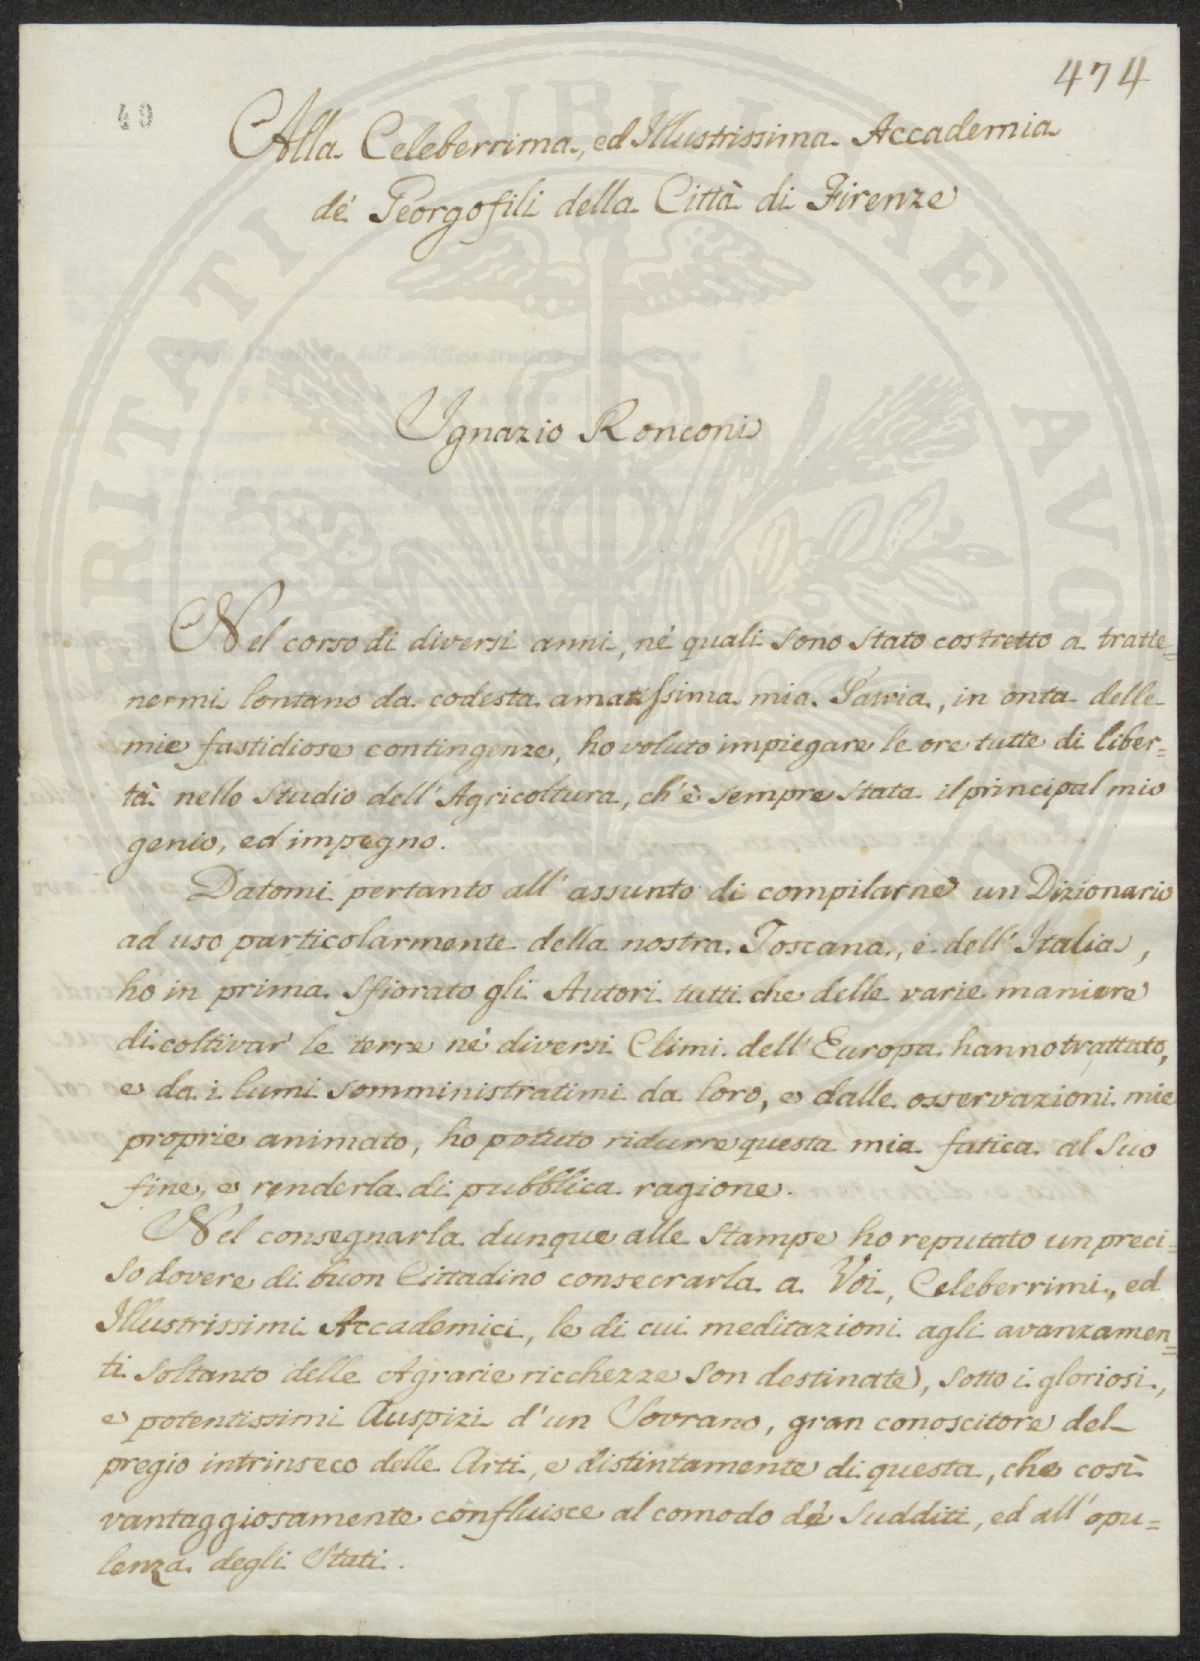 474
49
Alla Celeberrima, ed Illustrissima Accademia
de' Georgofili della Città di Firenze
Ignazio Ronconi
Nel corso di diversi anni, nè quali sono stato costretto a tratte=
nermi lontano da codesta amatissima mia Patria, in onta delle
mie fastidiose contingenze, ho voluto impiegare le ore tutte di liber=
tà nello studio dell'Agricoltura, ch'è sempre stata il principal mio
genio, ed impegno.
Datomi pertanto all'assunto di compilarne un Dizionario
ad uso particolarmente della nostra Toscana, e dell'Italia,
ho in prima sfiorato gli Autori tutti che delle varie maniere
di coltivar le terre nè diversi Climi dell'Europa hanno trattato,
e da i lumi somministratimi da loro, e dalle osservazioni mie
proprie animato, ho potuto ridurre questa mia fatica al suo
fine, e renderla di pubblica ragione.
Nel consegnarla dunque alle stampe ho reputato un preci=
so dovere di buon Cittadino consecrarla a Voi, Celeberrimi, ed
Illustrissimi Accademici, le di cui meditazioni agli avanzamen=
ti soltanto delle Agrarie ricchezze son destinate, sotto i gloriosi,
e potentissimi Auspizi d'un Sovrano, gran conoscitore del
pregio intrinseco delle Arti, e distintamente di questa, che così
vantaggiosamente confluisce al comodo de' sudditi, ed all'opu=
lenza degli Stati.